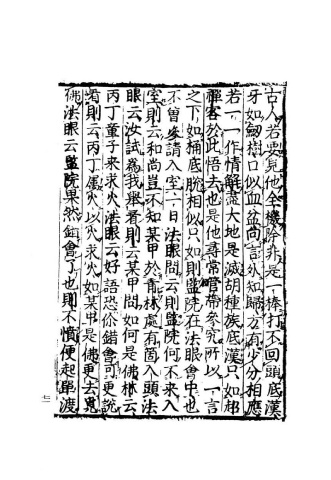 古人若要見他全機除非是一棒打不回頭底漢
牙如劒樹口似血盆向言外知歸方有少分相應
若一一作情解盡大地是滅胡種族底漢只如超
禪客於此悟去也是他尋常管帶參究所以一言
之下如桶底脫相似只如則監院在法眼會中也
不曾參請入室一日法眼問云則監院何不來入
室則云和尚豈不知某甲於青林處有箇入頭法
眼云汝試為我舉看則云某甲問如何是佛林云
丙丁童子來求火法眼云好語恐你錯會可更說
看則云丙丁屬火以火求火如某甲是佛更去覓
佛法眼云監院果然錯會了也則不憤便起單渡